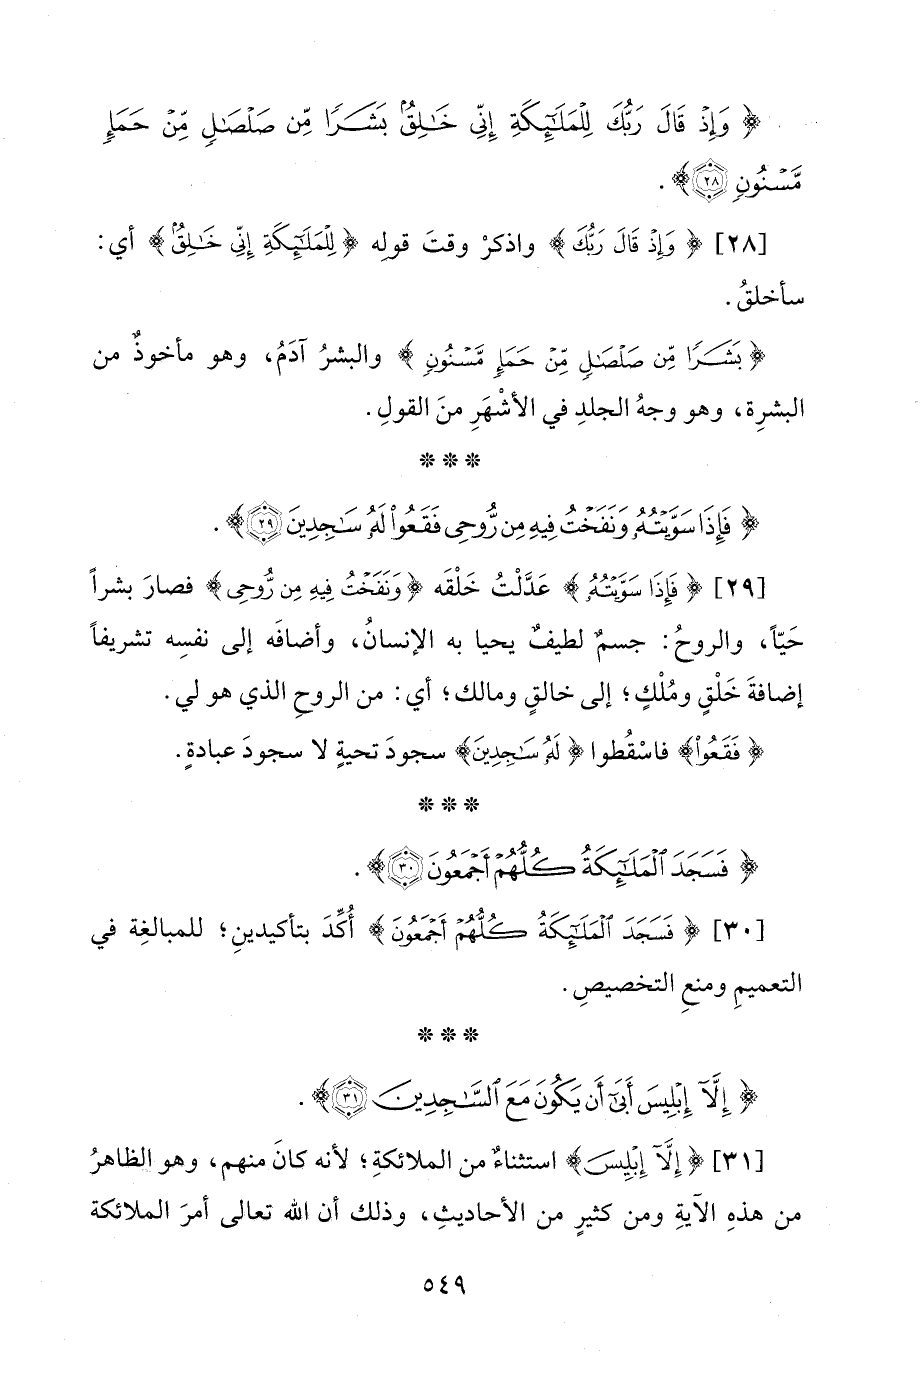 ﴿ وَإِذْ قَالَ رَبُّكَ لِلْمَلَٰٓئِكَةِ إِنِّى خَٰلِقٌۢ بَشَرًا مِّن صَلْصَٰلٍ مِّنْ حَمَإٍ
مَّسْنُونٍ ٢٨ ﴾ .
[٢٨] ﴿ وَإِذْ قَالَ رَبُّكَ ﴾ واذكرْ وقتَ قولِه ﴿لِلْمَلَٰٓئِكَةِ إِنِّى خَٰلِقٌۢ﴾ أي:
سأخلقُ .
﴿ بَشَرًا مِّن صَلْصَٰلٍ مِّنْ حَمَإٍ مَّسْنُونٍ ﴾ والبشرُ آدَمُ، وهو مأخوذٌ من
البشرِة، وهو وجهُ الجلدِ في الأشْهَرِ منَ القولِ.
* * *
﴿ فَإِذَا سَوَّيْتُهُۥ وَنَفَخْتُ فِيهِ مِن رُّوحِى فَقَعُوا۟ لَهُۥ سَٰجِدِينَ ٢٩ ﴾ .
[٢٩] ﴿ فَإِذَا سَوَّيْتُهُۥ ﴾ عَدَّلْتُ خَلْقَه ﴿وَنَفَخْتُ فِيهِ مِن رُّوحِى﴾ فصارَ بشراً
حَيّاً، والروحُ: جسمٌ لطيفٌ يحيا به الإنسانُ، وأضافَه إلى نفسِه تشريفاً
إضافةَ خَلْقٍ ومُلْكٍ؛ إلى خالقٍ ومالك؛ أي: من الروحِ الذي هو لي.
﴿ فَقَعُوا۟﴾ فاسْقُطوا ﴿ لَهُۥ سَٰجِدِينَ﴾ سجودَ تحيةٍ لا سجودَ عبادةٍ.
* * *
﴿ فَسَجَدَ ٱلْمَلَٰٓئِكَةُ كُلُّهُمْ أَجْمَعُونَ ٣٠ ﴾ .
[٣٠] ﴿ فَسَجَدَ ٱلْمَلَٰٓئِكَةُ كُلُّهُمْ أَجْمَعُونَ ﴾ أُكِّدَ بتأكيدينِ؛ للمبالغِة في
التعميمِ ومنعِ التخصيصِ.
* * *
﴿ إِلَّآ إِبْلِيسَ أَبَىٰٓ أَن يَكُونَ مَعَ ٱلسَّٰجِدِينَ ٣١ ﴾ .
[٣١] ﴿إِلَّآ إِبْلِيسَ﴾ استثناءٌ من الملائكةِ؛ لأنه كانَ منهم، وهو الظاهرُ
من هذهِ الآيةِ ومن كثيرٍ من الأحاديثِ، وذلك أن الله تعالى أمرَ الملائكة
٥٤٩